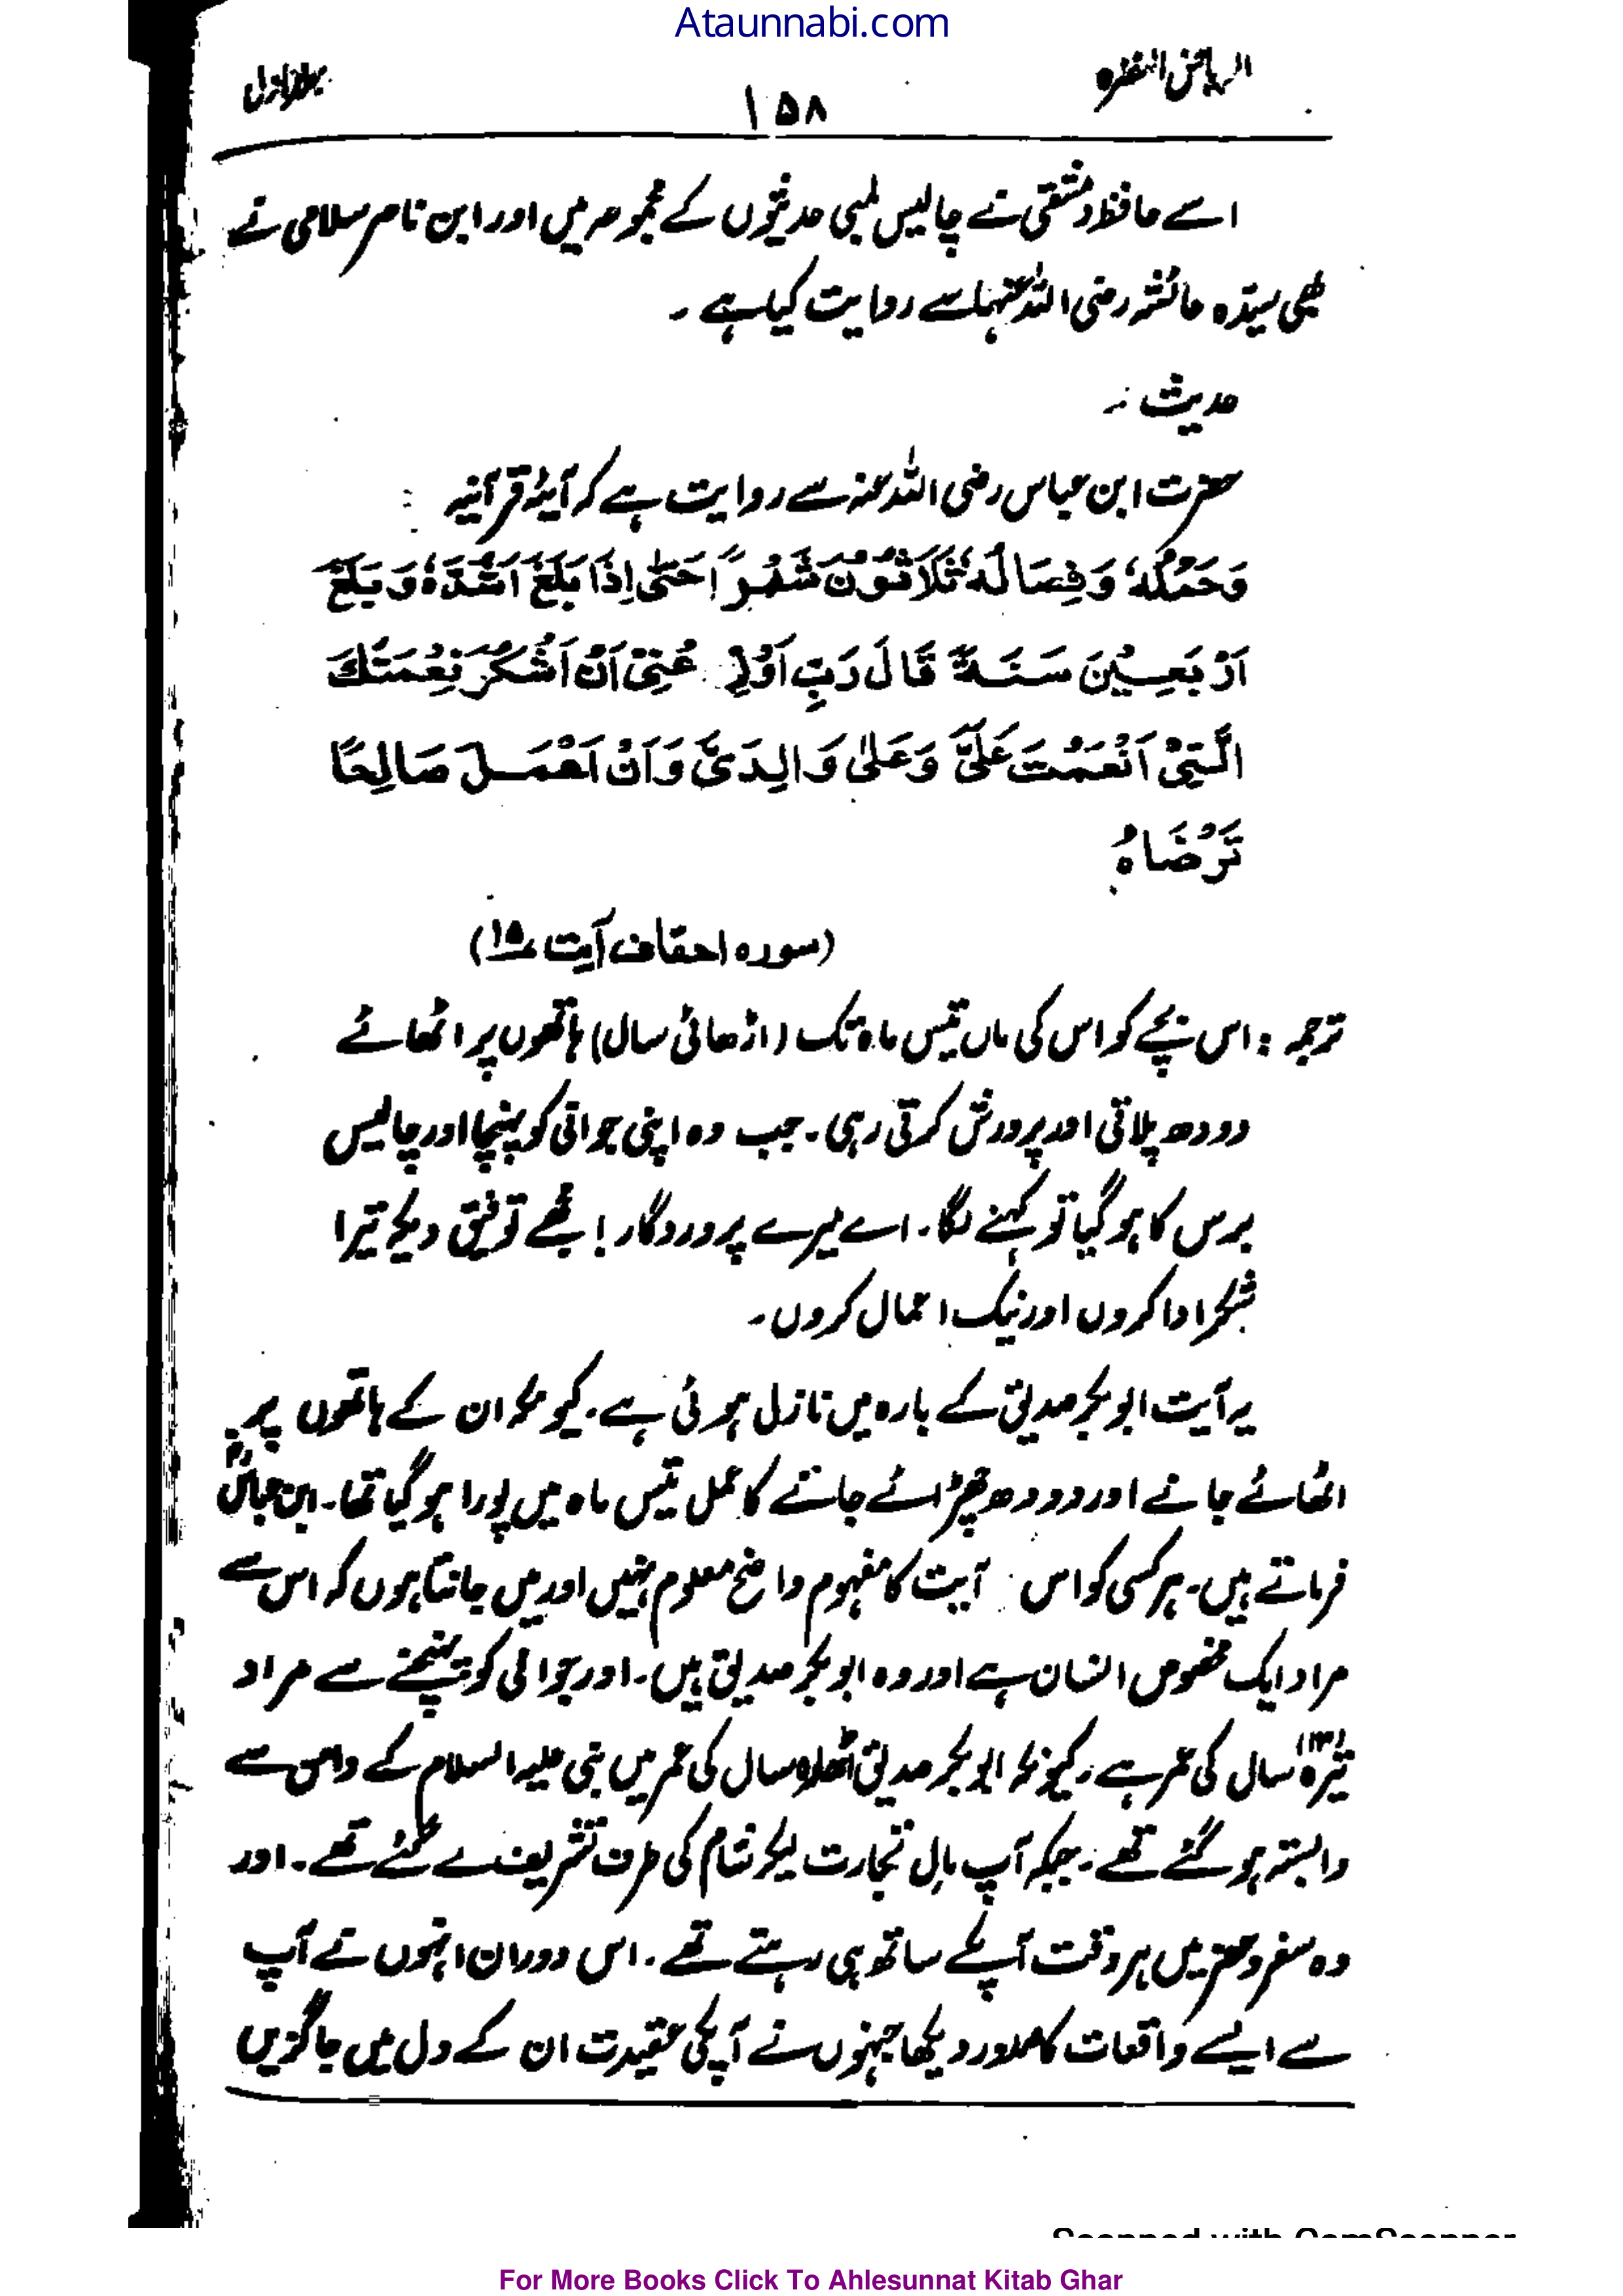 Ataunnabi.com
الریاض النضرہ ۱۵۸ جلد اول
اسے حافظ دمشقی نے چالیس لمبی حدیثوں کے مجموعہ میں اور ابن ناصر سلامی نے
بھی سیدہ عائشہ رضی اللہ عنہا سے روایت کیا ہے ۔
حدیث :۔
حضرت ابن عباس رضی اللہ عنہ سے روایت ہے کہ آیۂ قرآنیہ :
وَحَمْلُهٗ وَفِصَالُهٗ ثَلَاثُوْنَ شَهْرًا حَتّٰى اِذَا بَلَغَ اَشُدَّهٗ وَبَلَغَ
اَرْبَعِيْنَ سَنَةً قَالَ رَبِّ اَوْزِعْنِىْ اَنْ اَشْكُرَ نِعْمَتَكَ
الَّتِىْ اَنْعَمْتَ عَلَىَّ وَعَلٰى وَالِدَىَّ وَاَنْ اَعْمَلَ صَالِحًا
تَرْضَاهُ
(سورہ احقاف آیت ۱۵)
ترجمہ : اس بچے کو اس کی ماں تیس ماہ تک (اڑھائی سال) ہاتھوں پر اٹھائے
دودھ پلاتی اور پرورش کرتی رہی ۔ جب وہ اپنی جوانی کو پہنچا اور چالیس
برس کا ہو گیا تو کہنے لگا ۔ اے میرے پروردگار ! مجھے توفیق دیکہ تیرا
شکر ادا کروں اور نیک اعمال کروں ۔
یہ آیت ابوبکر صدیق کے بارہ میں نازل ہوئی ہے ۔ کیونکہ ان کے ہاتھوں پر
اٹھائے جانے اور دودھ چھڑائے جانے کا عمل تیس ماہ میں پورا ہو گیا تھا ۔ ابن عباسؓ
فرماتے ہیں ۔ ہر کسی کو اس آیت کا مفہوم واضح معلوم نہیں اور میں جانتا ہوں کہ اس سے
مراد ایک مخصوص انسان ہے اور وہ ابوبکر صدیق ہیں ۔ اور جوانی کو پہنچنے سے مراد
تیرہ (۱۳) سال کی عمر ہے ۔ کیونکہ ابوبکر صدیق اٹھارہ سال کی عمر میں نبی علیہ السلام کے دامن سے
وابستہ ہو گئے تھے ۔ جبکہ آپ مالِ تجارت لیکر شام کی طرف تشریف لے گئے تھے ۔ اور
وہ سفر و حضر میں ہر وقت آپکے ساتھ ہی رہتے تھے ۔ اس دوران انہوں نے آپ
سے ایسے واقعات کا صدور دیکھا جنہوں نے آپکی عقیدت ان کے دل میں جاگزیں
Scanned with CamScanner
For More Books Click To Ahlesunnat Kitab Ghar